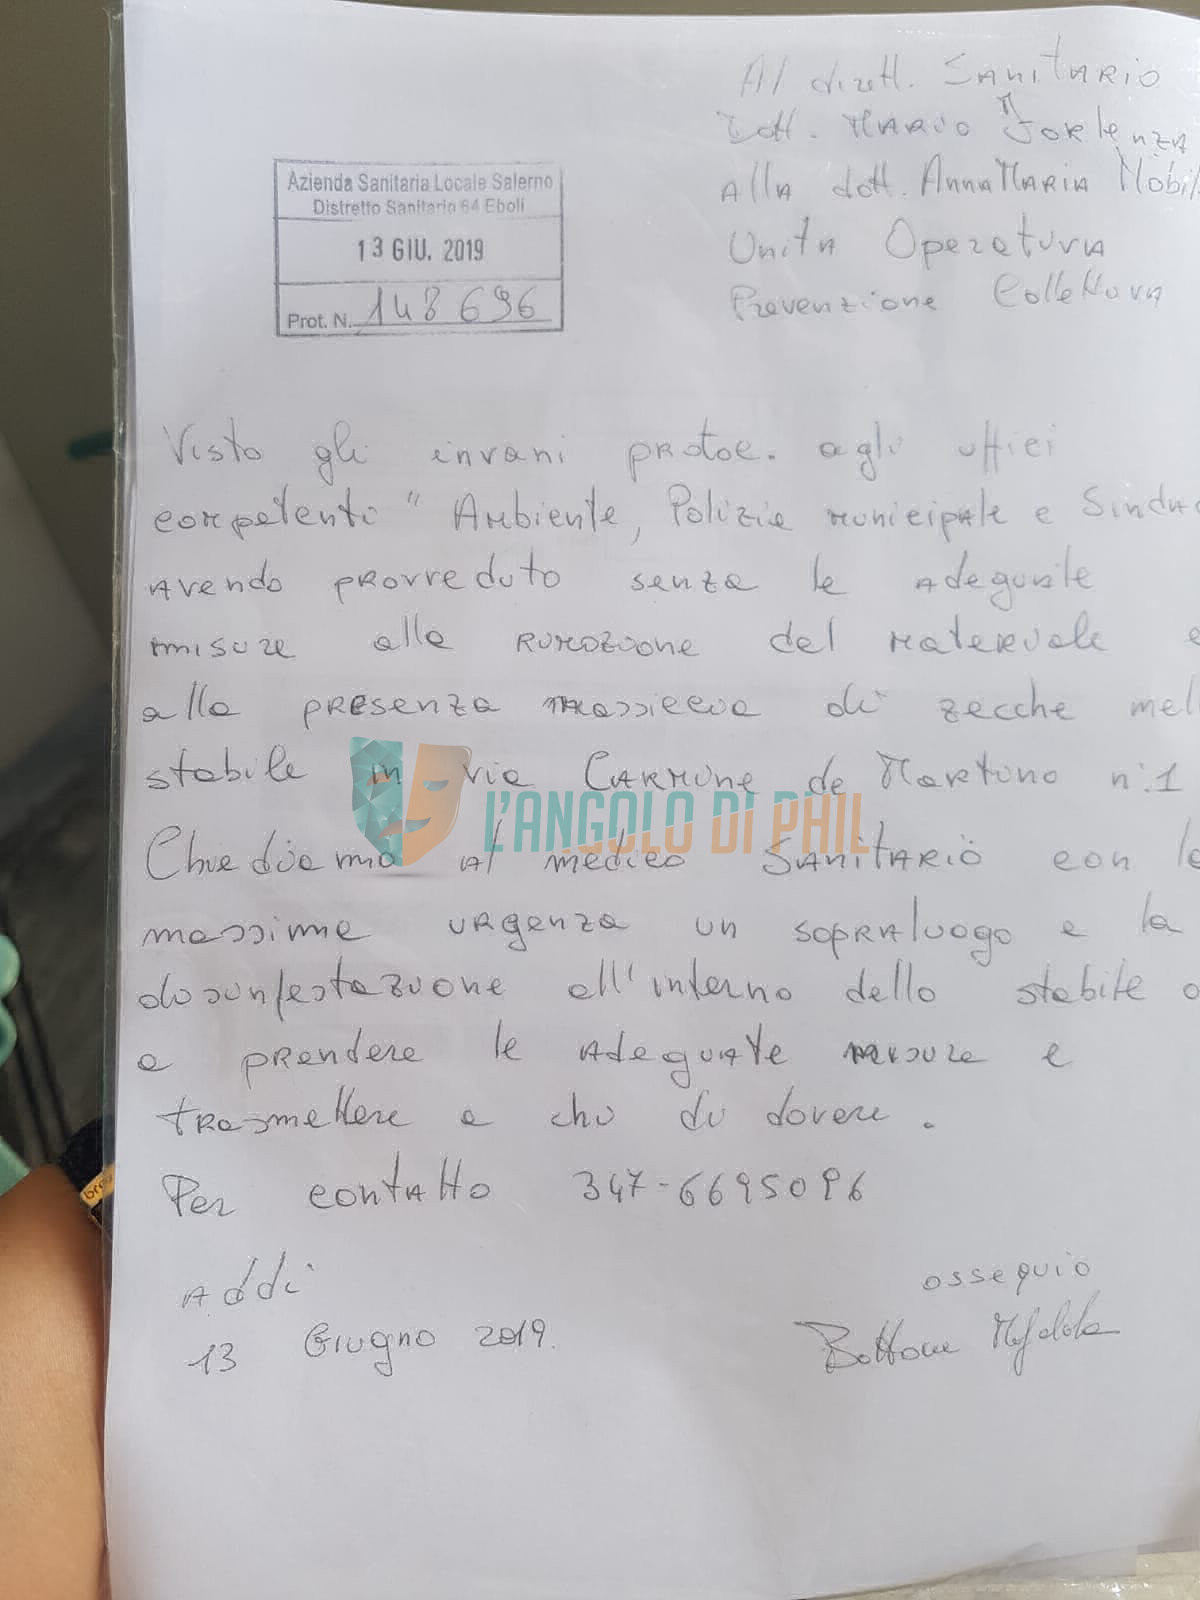 Al dirett. SANitARiO
Dott. MARio Forlenza
Alla dott. AnnaMaria Mobil
Azienda Sanitaria Locale Salerno
Distretto Sanitario 64 Eboli
13 GIU. 2019
Prot. N. 148696
Unità Operativa
Prevenzione Collettiva
Visto gli invani protoc. agli uffici
competenti " Ambiente, Polizia municipale e Sindac
Avendo provveduto senza le adeguate
misure alla rimozione del materiale e
alla presenza massicciva di zecche nell
stabile in via Carmine de Martino n°1
L'ANGOLO DI PHIL
Chiediamo al medico SANitARiO con la
massima urgenza un sopraluogo e la
disinfestazione all'interno dello stabile o
a prendere le adeguate misure e
trasmettere a chi di dovere.
Per contatto 347-6695096
Addì
13 Giugno 2019.
ossequio
Bottone Mafalda